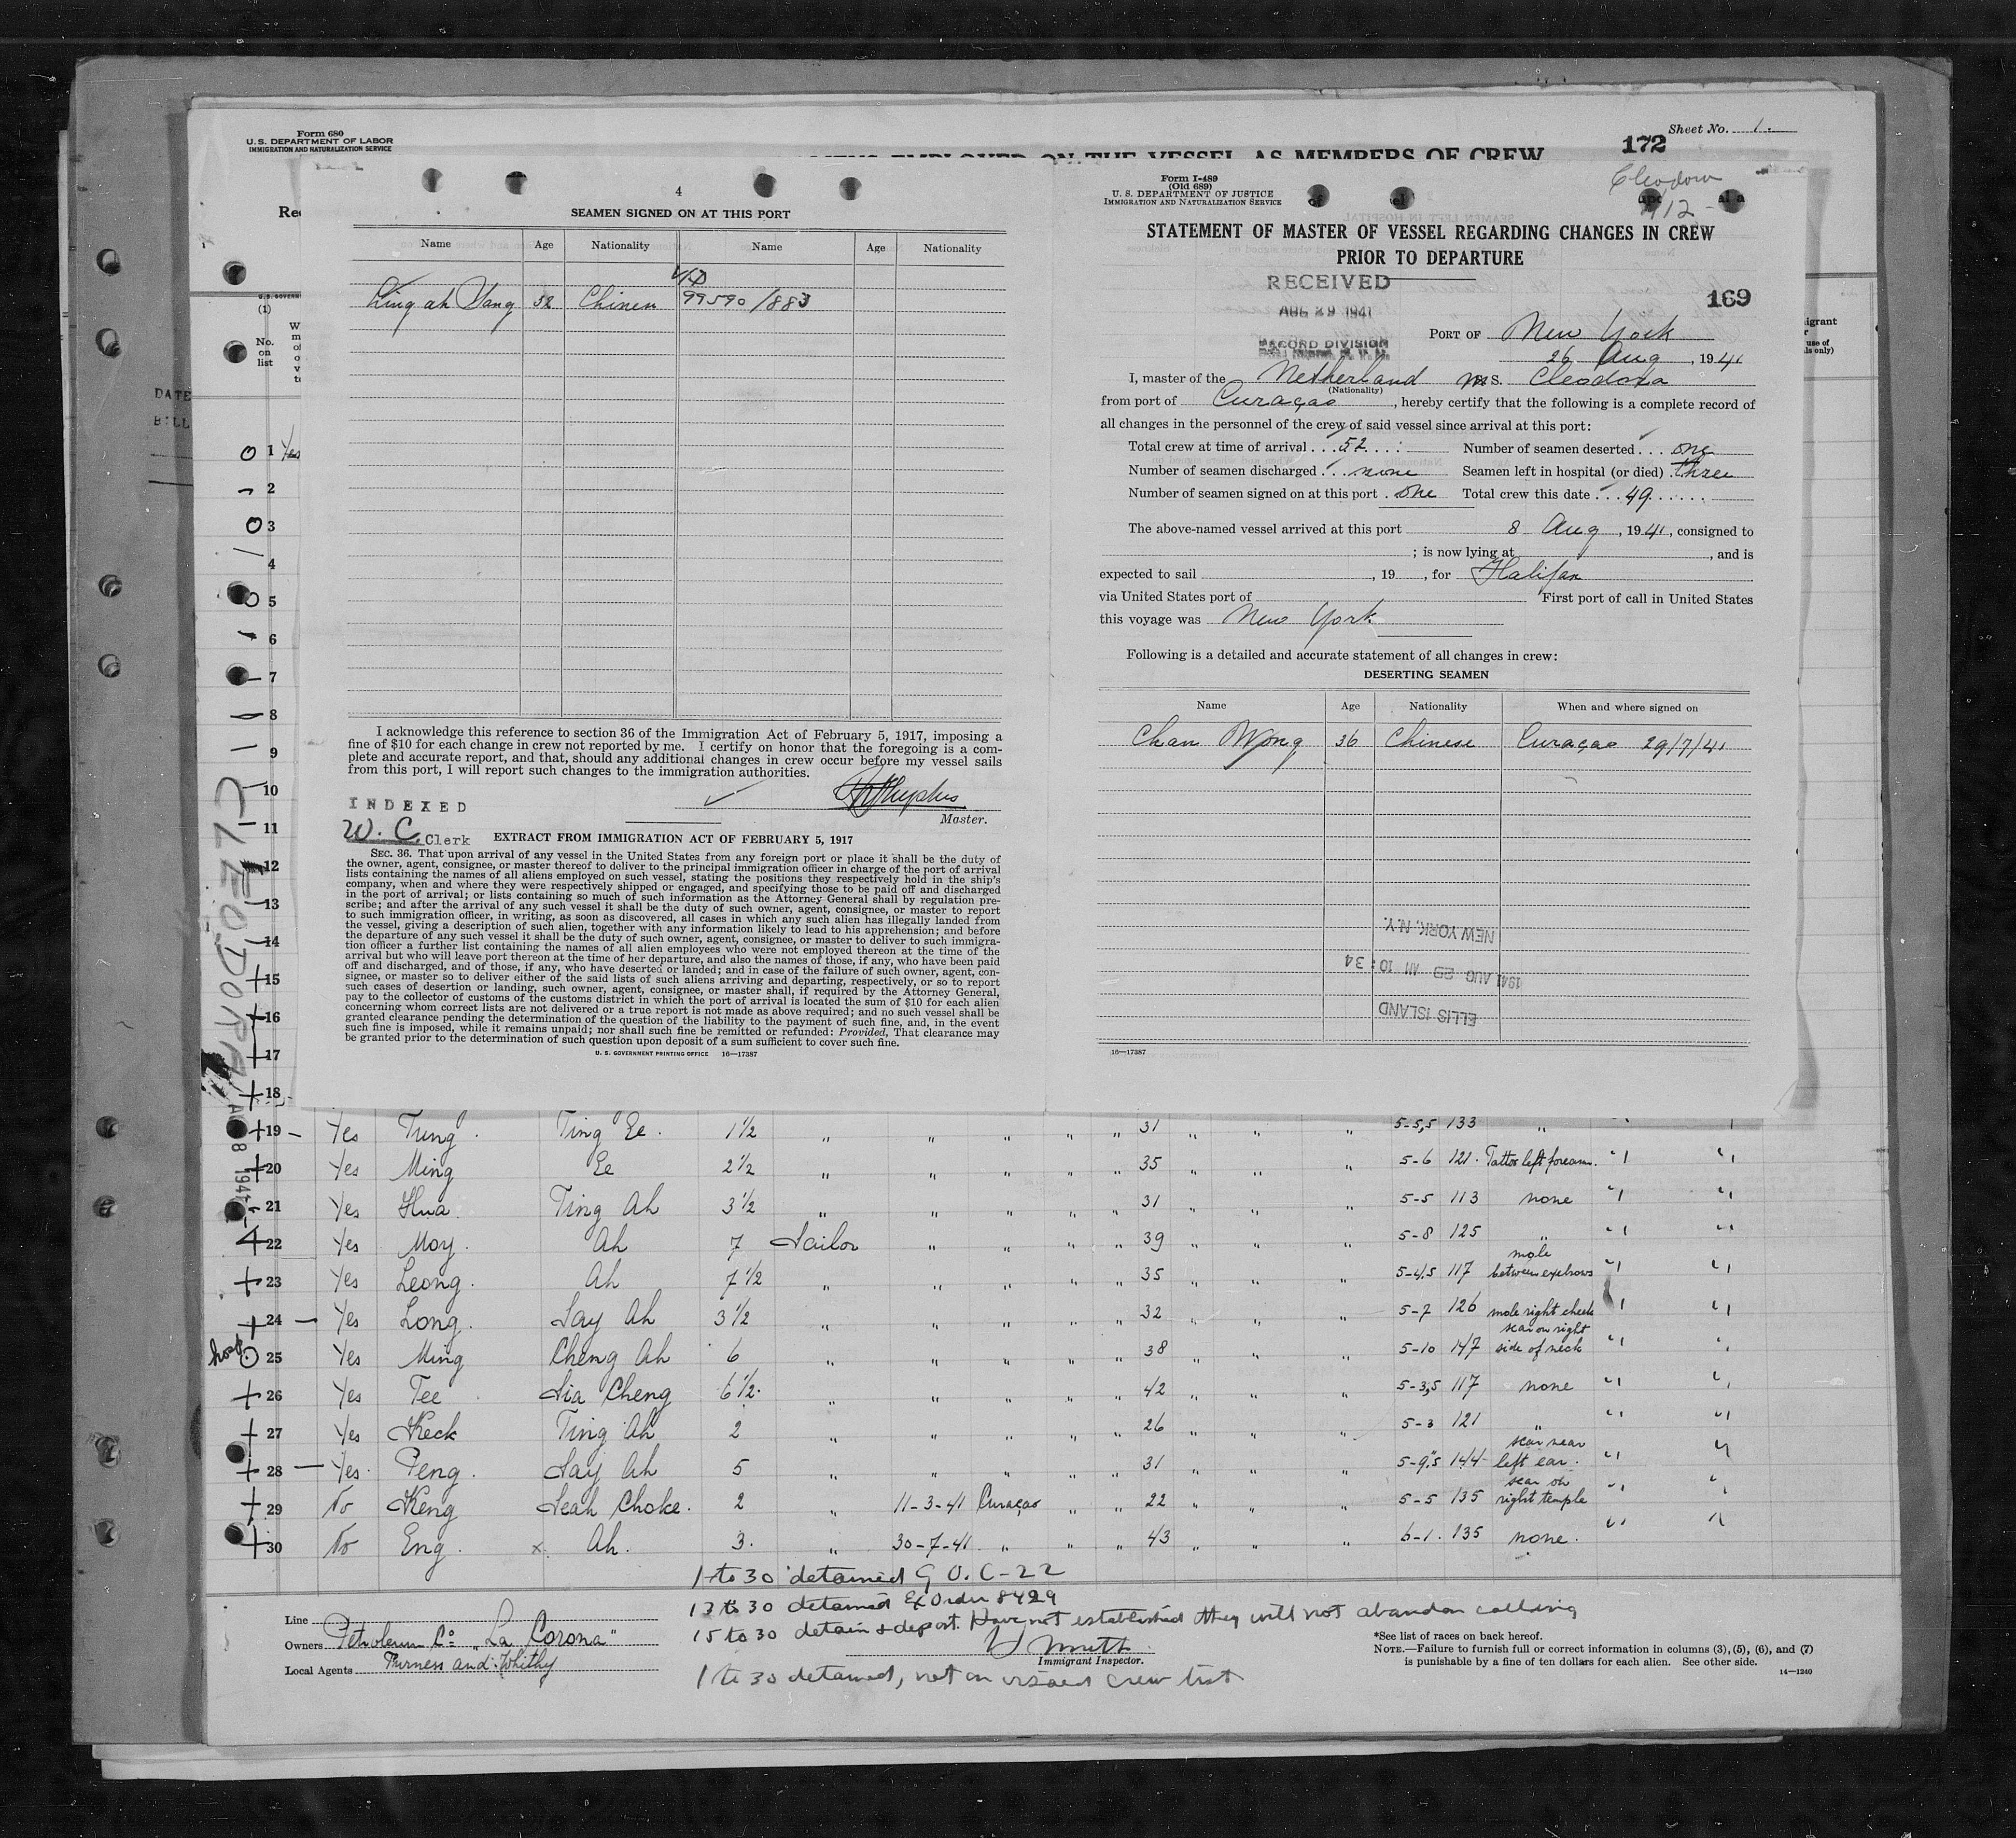 Form 680
U. S. DEPARTMENT OF LABOR
IMMIGRATION AND NATURALIZATION SERVICE
172
Sheet No. 1.
ON THE VESSEL AS MEMBERS OF CREW
4
SEAMEN SIGNED ON AT THIS PORT
Name Age Nationality Name Age Nationality
Ah 32 99590/883
I acknowledge this reference to section 36 of the Immigration Act of February 5, 1917, imposing a
fine of $10 for each change in crew not reported by me. I certify on honor that the foregoing is a com-
plete and accurate report, and that, should any additional changes in crew occur before my vessel sails
from this port, I will report such changes to the immigration authorities.
Master.
INDEXED
W. C. Clerk
EXTRACT FROM IMMIGRATION ACT OF FEBRUARY 5, 1917
SEC. 36. That upon arrival of any vessel in the United States from any foreign port or place it shall be the duty of
the owner, agent, consignee, or master thereof to deliver to the principal immigration officer in charge of the port of arrival
lists containing the names of all aliens employed on such vessel, stating the positions they respectively hold in the ship's
company, when and where they were respectively shipped or engaged, and specifying those to be paid off and discharged
in the port of arrival; or lists containing so much of such information as the Attorney General shall by regulation pre-
scribe; and after the arrival of any such vessel it shall be the duty of such owner, agent, consignee, or master to report
to such immigration officer, in writing, as soon as discovered, all cases in which any such alien has illegally landed from
the vessel, giving a description of such alien, together with any information likely to lead to his apprehension; and before
the departure of any such vessel it shall be the duty of such owner, agent, consignee, or master to deliver to such immigra-
tion officer a further list containing the names of all alien employees who were not employed thereon at the time of the
arrival but who will leave port thereon at the time of her departure, and also the names of those, if any, who have been paid
off and discharged, and of those, if any, who have deserted or landed; and in case of the failure of such owner, agent, con-
signee, or master so to deliver either of the said lists of such aliens arriving and departing, respectively, or so to report
such cases of desertion or landing, such owner, agent, consignee, or master shall, if required by the Attorney General,
pay to the collector of customs of the customs district in which the port of arrival is located the sum of $10 for each alien
concerning whom correct lists are not delivered or a true report is not made as above required; and no such vessel shall be
granted clearance pending the determination of the question of the liability to the payment of such fine, and, in the event
such fine is imposed, while it remains unpaid; nor shall such fine be remitted or refunded: Provided, That clearance may
be granted prior to the determination of such question upon deposit of a sum sufficient to cover such fine.
U. S. GOVERNMENT PRINTING OFFICE 16—17387
Form I-489
(Old 689)
U. S. DEPARTMENT OF JUSTICE
IMMIGRATION AND NATURALIZATION SERVICE
STATEMENT OF MASTER OF VESSEL REGARDING CHANGES IN CREW
PRIOR TO DEPARTURE
RECEIVED
AUG 29 1941
RECORD DIVISION
169
PORT OF New York
26 Aug, 1941
I, master of the Netherland M.S. Cleodora
(Nationality)
from port of Curaçao, hereby certify that the following is a complete record of
all changes in the personnel of the crew of said vessel since arrival at this port:
Total crew at time of arrival 52 Number of seamen deserted one
Number of seamen discharged none Seamen left in hospital (or died) three
Number of seamen signed on at this port one Total crew this date 49
The above-named vessel arrived at this port 8 Aug, 1941, consigned to
; is now lying at , and is
expected to sail , 19 , for Halifax
via United States port of First port of call in United States
this voyage was New York
Following is a detailed and accurate statement of all changes in crew:
DESERTING SEAMEN
Name Age Nationality When and where signed on
Chan Wong 36 Chinese Curaçao 29/7/41
NEW YORK, N.Y.
1941 AUG 29 AM 10:34
ELLIS ISLAND
16—17387
(1)
No.
on
list
DATE
BILL
CLEODORA
AUG 8 1941
1
2
3
4
5
6
7
8
9
10
11
12
13
14
15
16
17
18
19 Yes Tung Ting Ee 1½ " " " " " 31 " " " 5-5,5 133 "
20 Yes Ming Ee 2½ " " " " " 35 " " " 5-6 121 Tattoo left forearm. " "
21 Yes Hua Ting Ah 3½ " " " " " 31 " " " 5-5 113 none " "
22 Yes Moy Ah 7 Sailor " " " " 39 " " " 5-8 125 " " "
23 Yes Leong Ah 7½ " " " " " 35 " " " 5-4,5 117 mole between eyebrows " "
24 Yes Long Say Ah 3½ " " " " " 32 " " " 5-7 126 mole right cheek " "
hosp 25 Yes Ming Cheng Ah 6 " " " " " 38 " " " 5-10 147 scar on right side of neck " "
26 Yes Tee Sia Cheng 6½ " " " " " 42 " " " 5-3,5 117 none " "
27 Yes Keck Ting Ah 2 " " " " " 26 " " " 5-3 121 " " "
28 Yes Peng Say Ah 5 " " " " " 31 " " " 5-9,5 144 scar near left ear. " "
29 No Keng Seah Choke. 2 " 11-3-41 Curaçao " " 22 " " " 5-5 135 scar on right temple " "
30 No Eng x Ah. 3. " 30-7-41 " " " 43 " " " 6-1 135 none. " "
1 to 30 detained G.O. C-22
13 to 30 detained Ex Order 8429
15 to 30 detain & deport. Have not established they will not abandon calling
Immigrant Inspector.
1 to 30 detained, not on visaed crew list
Line
Owners Petroleum Co "La Corona"
Local Agents Furness and Whithy
*See list of races on back hereof.
NOTE.—Failure to furnish full or correct information in columns (3), (5), (6), and (7)
is punishable by a fine of ten dollars for each alien. See other side.
14—1240